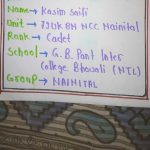 Name → Kasim Saifi
Unit → 79UK BN NCC Nainital
Rank → Cadet
School → G.B. Pant Inter
College Bhowali (NTL)
Group → NAINITAL